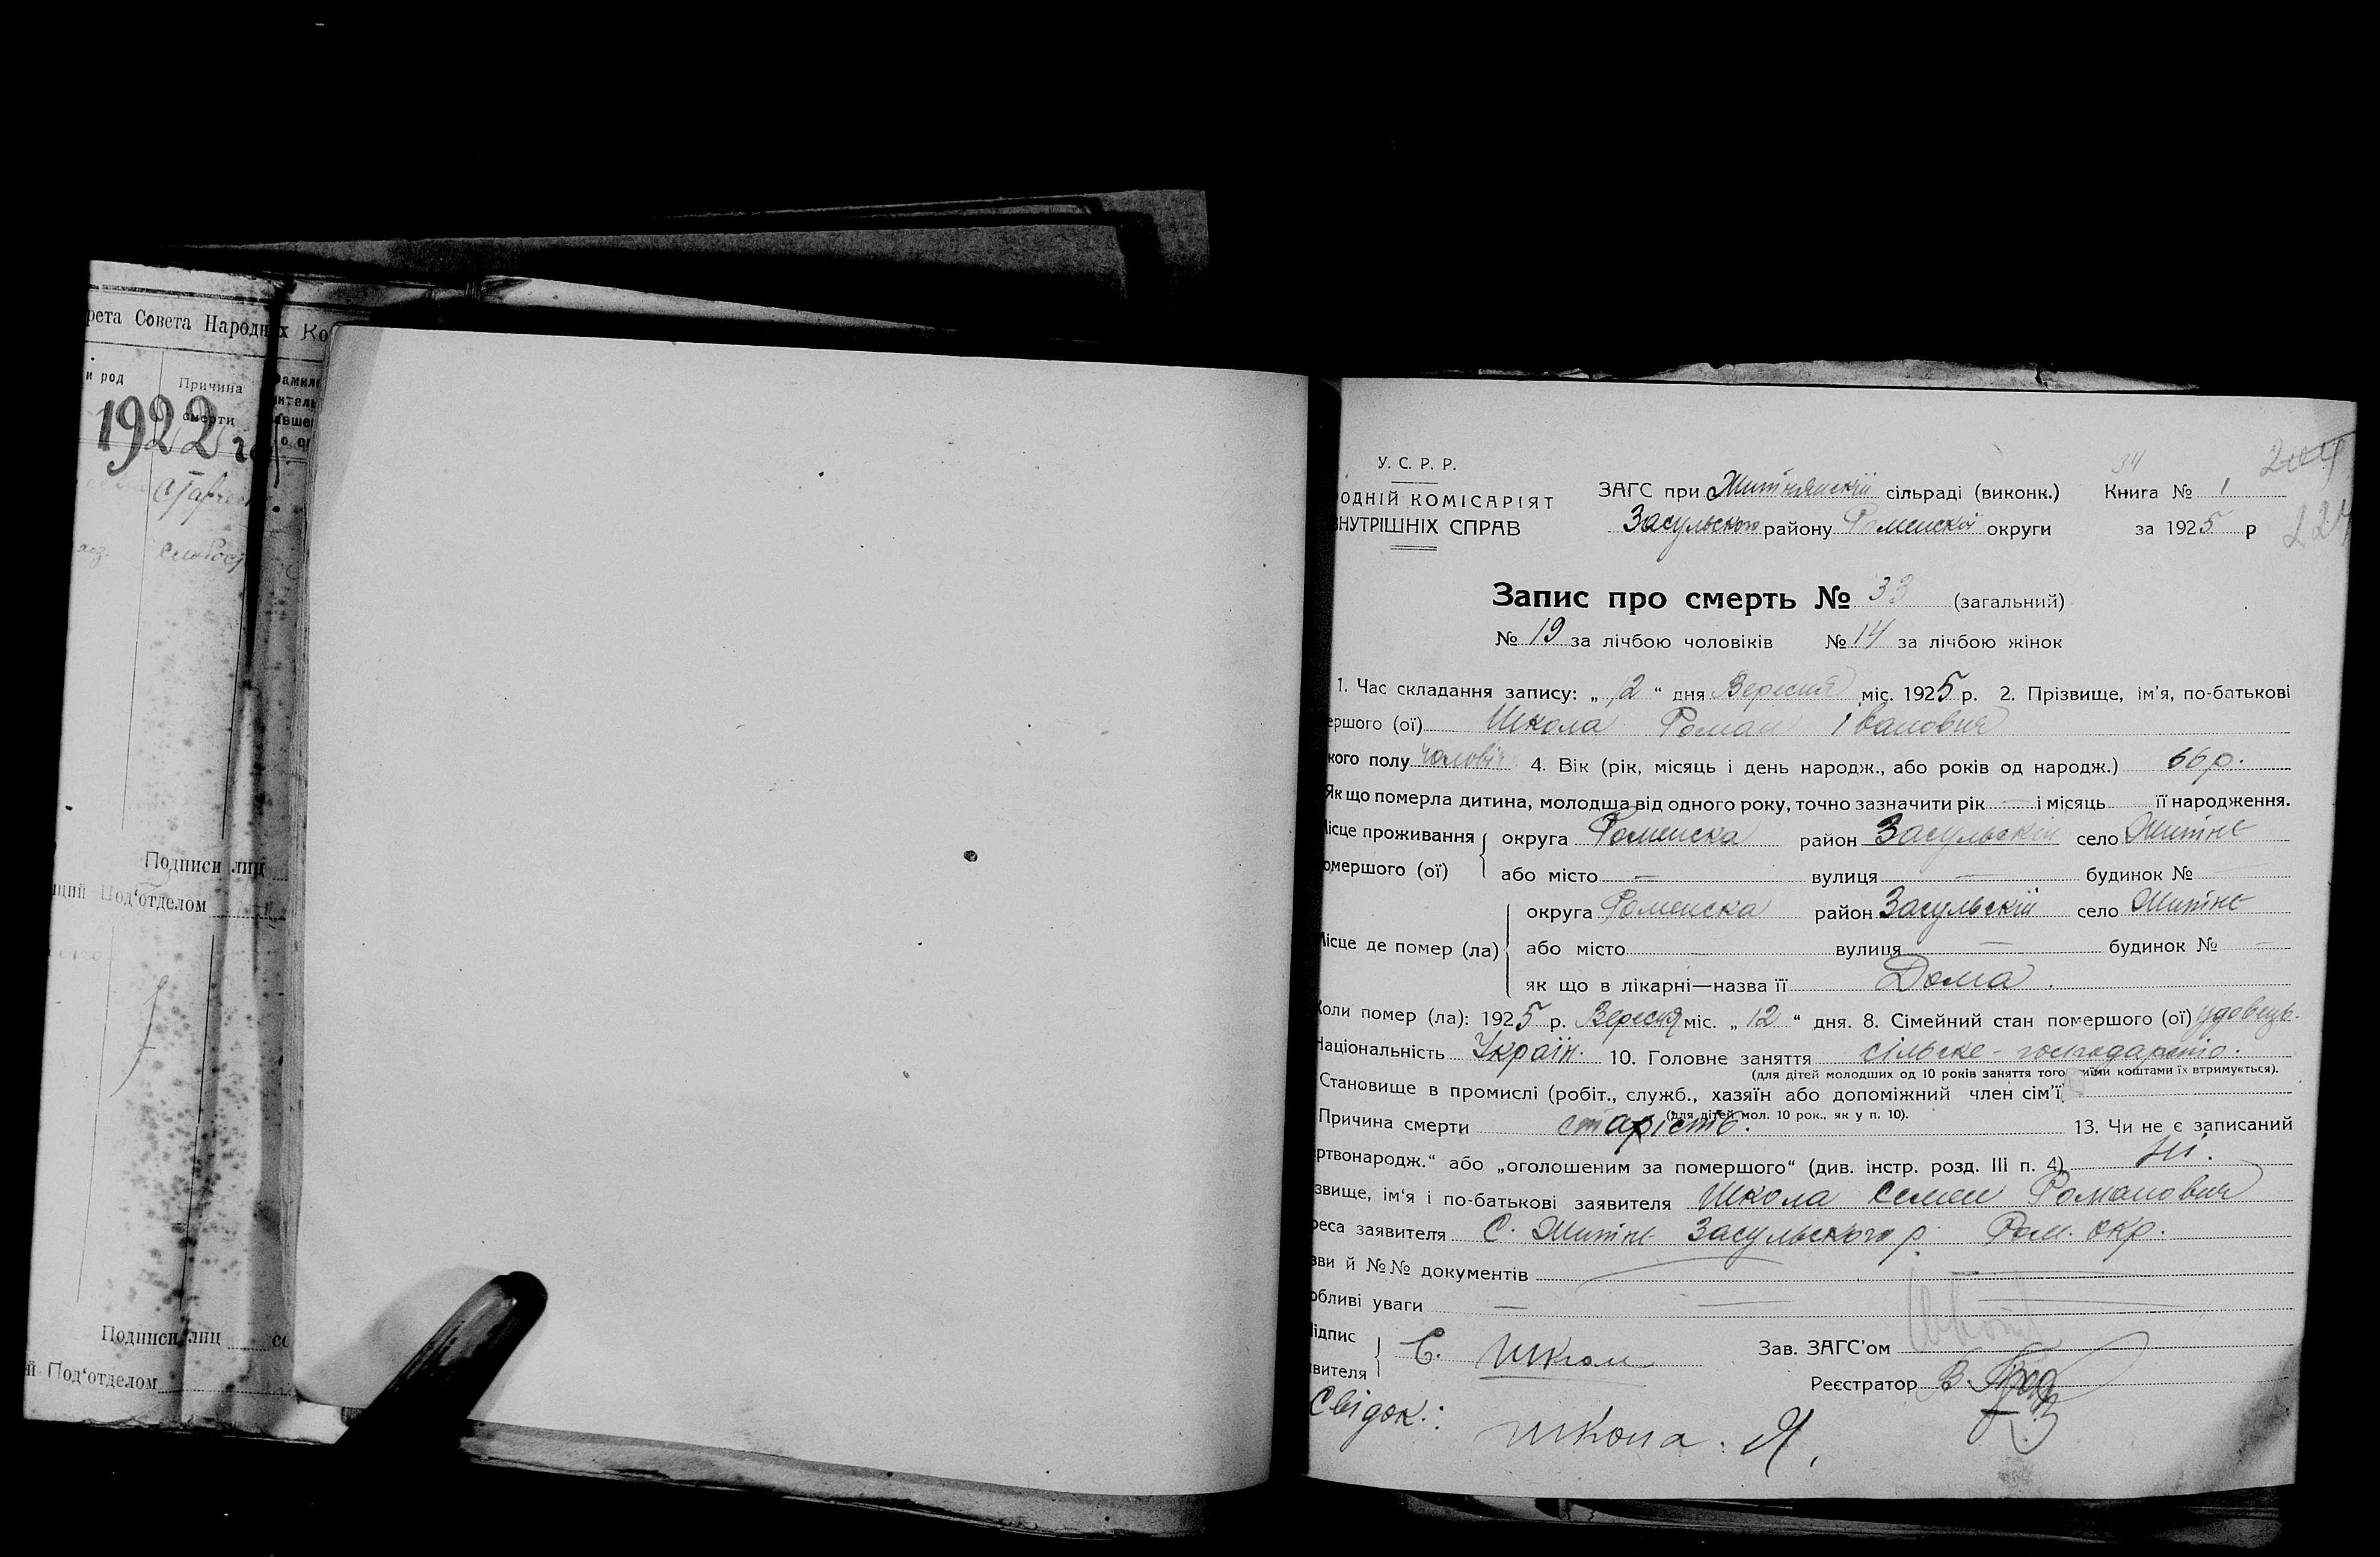 рета Совета Народных Ко
и род
Причина
смерти
амил
итель
авше
1922 го
Подписи лиц
щий Под‘отделом
Подписи лиц
й Под‘отделом
У. С. Р. Р.
ОДНІЙ КОМІСАРІЯТ
ВНУТРІШНІХ СПРАВ
ЗАГС при Житнянскій сільраді (виконк.)
Засульского району Роменскій округи
34
Книга № 1
за 1925 р
Запис про смерть № 33 (загальний)
№ 19 за лічбою чоловіків № 14 за лічбою жінок
1. Час складання запису: „12“ дня Вересня міс. 1925 р. 2. Прізвище, ім’я, по-батькові
ершого (ої) Школа Роман Іванович
кого полу чоловіч 4. Вік (рік, місяць і день народж., або років од народж.) 66 р.
Як що померла дитина, молодша від одного року, точно зазначити рік — і місяць її народження.
Місце проживання округа Роменска район Засульскій село Житне
омершого (ої) або місто — вулиця — будинок № —
округа Роменска район Засульскій село Житне
Місце де помер (ла) або місто — вулиця — будинок № —
як що в лікарні—назва її Дома.
Коли помер (ла): 1925 р. Вересня міс. „12“ дня. 8. Сімейний стан помершого (ої) удовець.
Національність Україн. 10. Головне заняття сільске-господарство.
(для дітей молодших од 10 років заняття того, чиїми коштами їх втримується).
Становище в промислі (робіт., служб., хазяїн або допоміжний член сім’ї
(для дітей мол. 10 рок., як у п. 10).
Причина смерти старість. 13. Чи не є записаний
ртвонародж.“ або „оголошеним за помершого“ (див. інстр. розд. III п. 4) Ні.
звище, ім‘я і по-батькові заявителя Школа Семен Романович
реса заявителя С. Житне Засульского р. Ром. окр.
зви й №№ документів —
обливі уваги — — —
Підпис
явителя С. Школа
Зав. ЗАГС’ом
Реєстратор В.
Свідок:
Школа. Я.